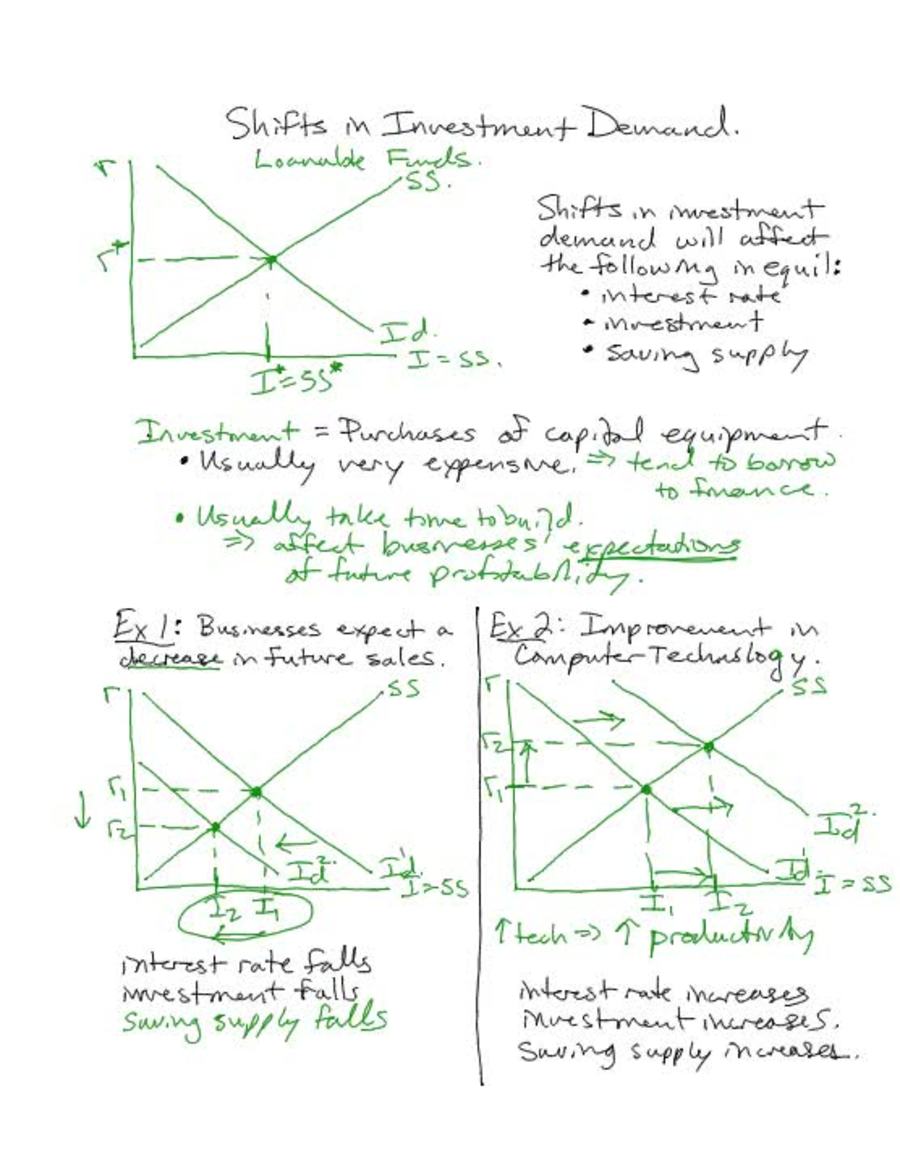 Shifts in Investment Demand.
Loanable Funds.
r
SS.
r*
Id.
I = SS.
I* = SS*
Shifts in investment
demand will affect
the following in equil:
• interest rate
• investment
• saving supply
Investment = Purchases of capital equipment.
• Usually very expensive. ⇒ tend to borrow
to finance.
• Usually take time to build.
⇒ affect businesses' expectations
of future profitability.
Ex 1: Businesses expect a
decrease in future sales.
r
SS
r1
r2
Id²
Id¹
I = SS
I2 I1
interest rate falls
investment falls
Saving supply falls
Ex 2: Improvement in
Computer Technology.
r
SS
r2
r1
Id²
Id¹
I = SS
I1 I2
↑ tech ⇒ ↑ productivity
interest rate increases
investment increases.
Saving supply increases.